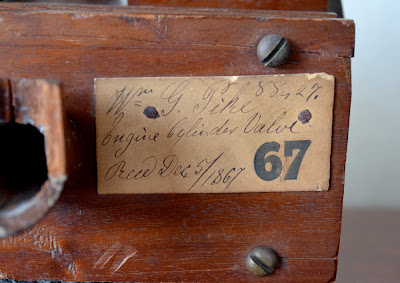 Wm G. Pike
Engine Cylinder Valve
Recd Dec 5/1867.
67